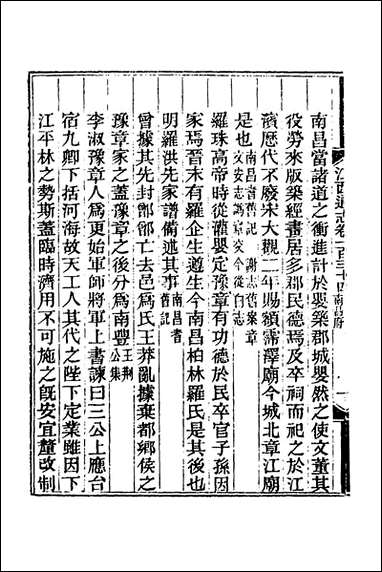 江西通志卷一百三十四南昌府
南昌當諸道之衝進計於嬰築郡城嬰然之使文董其
役勞來版築經畫居多郡民德焉及卒祠而祀之於江
濱歷代不廢宋大觀二年賜額需澤廟今城北章江廟
是也南昌耆舊記 謝志舊案章文安志譌章交今從白志
羅珠高帝時從灌嬰定豫章有功德於民卒官子孫因
家焉晉末有羅企生遵生今南昌柏林羅氏是其後也
明羅洪先家譜備述其事南昌耆舊記
曾據其先封鄫鄫亡去邑爲氏王莽亂據棄都鄉侯之
豫章家之蓋豫章之後分爲南豐王荆公集
李淑豫章人爲更始軍師將軍上書諫曰三公上應台
宿九卿下括河海故天工人其代之陛下定業雖因下
江平林之勢斯蓋臨時濟用不可施之旣安宜釐改制